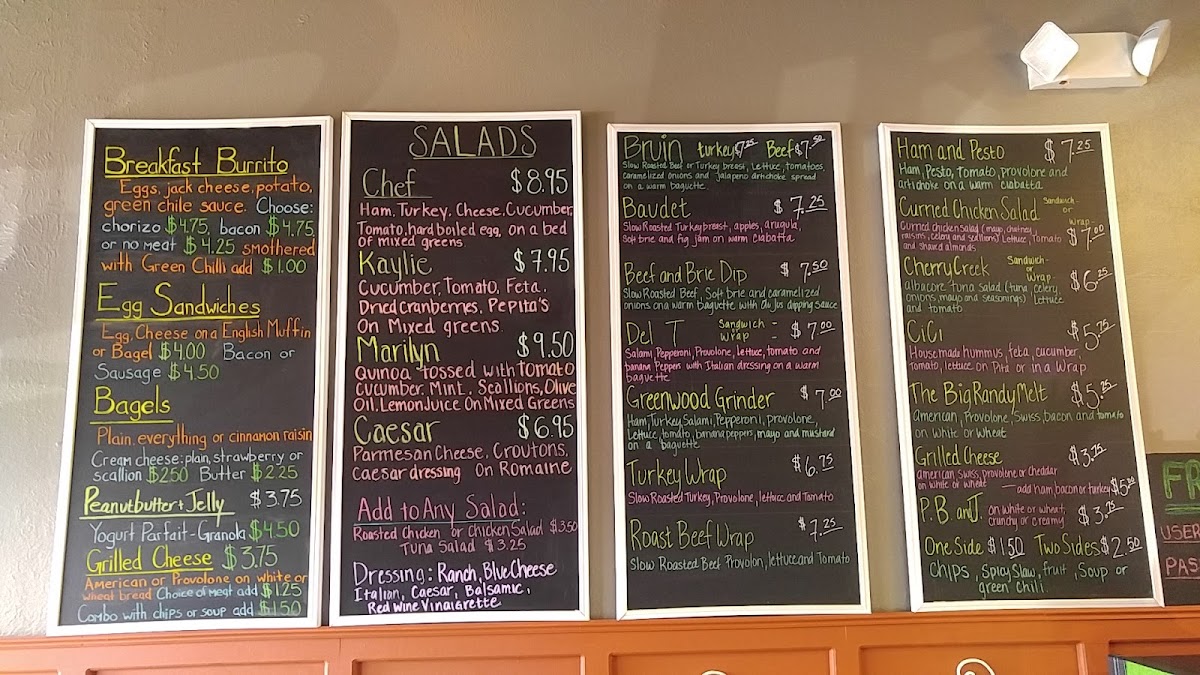 Breakfast Burrito
Eggs, jack cheese, potato,
green chile sauce. Choose:
chorizo $4.75, bacon $4.75,
or no meat $4.25 smothered
with Green Chili add $1.00
Egg Sandwiches
Egg, Cheese on a English Muffin
or Bagel $4.00 Bacon or
Sausage $4.50
Bagels
Plain, everything or cinnamon raisin
Cream cheese: plain, strawberry or
scallion $2.50 Butter $2.25
Peanutbutter + Jelly $3.75
Yogurt Parfait-Granola $4.50
Grilled Cheese $3.75
American or Provolone on white or
wheat bread Choice of meat add $1.25
Combo with chips or soup add $1.50
SALADS
Chef $8.95
Ham, Turkey, Cheese, Cucumber,
Tomato, hard boiled egg, on a bed
of mixed greens
Kaylie $7.95
Cucumber, Tomato, Feta,
Dried Cranberries, Pepita's
On Mixed greens
Marilyn $9.50
Quinoa tossed with tomato
cucumber, Mint, Scallions, Olive
Oil, Lemon Juice On Mixed Greens
Caesar $6.95
Parmesan Cheese, Croutons,
Caesar dressing on Romaine
Add to Any Salad:
Roasted Chicken or Chicken Salad $3.50
Tuna Salad $3.25
Dressing: Ranch, Blue Cheese
Italian, Caesar, Balsamic,
Red Wine Vinaigrette
Bruin turkey $7.25 Beef $7.50
Slow Roasted Beef or Turkey breast, Lettuce, tomatoes,
caramelized onions and jalapeno artichoke spread
on a warm baguette
Baudet $7.25
Slow Roasted Turkey breast, apples, arugula,
Soft brie and fig jam on warm ciabatta
Beef and Brie Dip $7.50
Slow Roasted Beef, Soft brie and caramelized
onions on a warm baguette with au jus dipping sauce
Del T Sandwich - or wrap - $7.00
Salami, Pepperoni, Provolone, lettuce, tomato and
banana Peppers with Italian dressing on a warm
baguette
Greenwood Grinder $7.00
Ham, Turkey, Salami, Pepperoni, provolone,
Lettuce, tomato, banana peppers, mayo and mustard
on a baguette
Turkey Wrap $6.75
Slow Roasted Turkey, Provolone, lettuce and Tomato
Roast Beef Wrap $7.25
Slow Roasted Beef Provolon, lettuce and Tomato
Ham and Pesto $7.25
Ham, Pesto, Tomato, provolone and
artichoke on a warm ciabatta
Curried Chicken Salad Sandwich - or Wrap - $7.00
Curried chicken salad (mayo, chutney,
raisins, celery and scallions) Lettuce, Tomato
and shaved almonds
Cherry Creek Sandwich - or Wrap - $6.25
albacore tuna salad (tuna, celery,
onions, mayo and seasonings) Lettuce
and tomato
CiCi $5.75
House made hummus, feta, cucumber,
Tomato, lettuce on Pita or in a Wrap
The Big Randy Melt $5.25
american, Provolone, Swiss, bacon and tomato
on white or wheat
Grilled Cheese $3.75
american, swiss, provolone or cheddar
on white or wheat — add ham, bacon or turkey $5.00
P.B. and J. on white or wheat, $3.75
crunchy or creamy
One Side $1.50 Two Sides $2.50
Chips, Spicy Slaw, fruit, Soup or
green chili
FR
USER
PAS